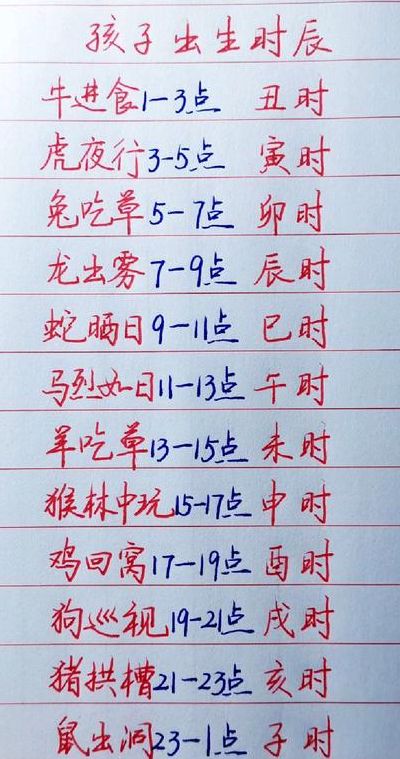 孩子出生时辰
牛进食1-3点 丑时
虎夜行3-5点 寅时
兔吃草5-7点 卯时
龙出雾7-9点 辰时
蛇晒日9-11点 巳时
马烈如日11-13点 午时
羊吃草13-15点 未时
猴林中玩15-17点 申时
鸡回窝17-19点 酉时
狗巡视19-21点 戌时
猪拱槽21-23点 亥时
鼠出洞23-1点 子时